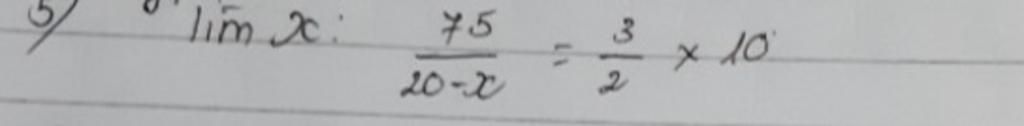 5) lim x: 75/(20-x) = 3/2 × 10